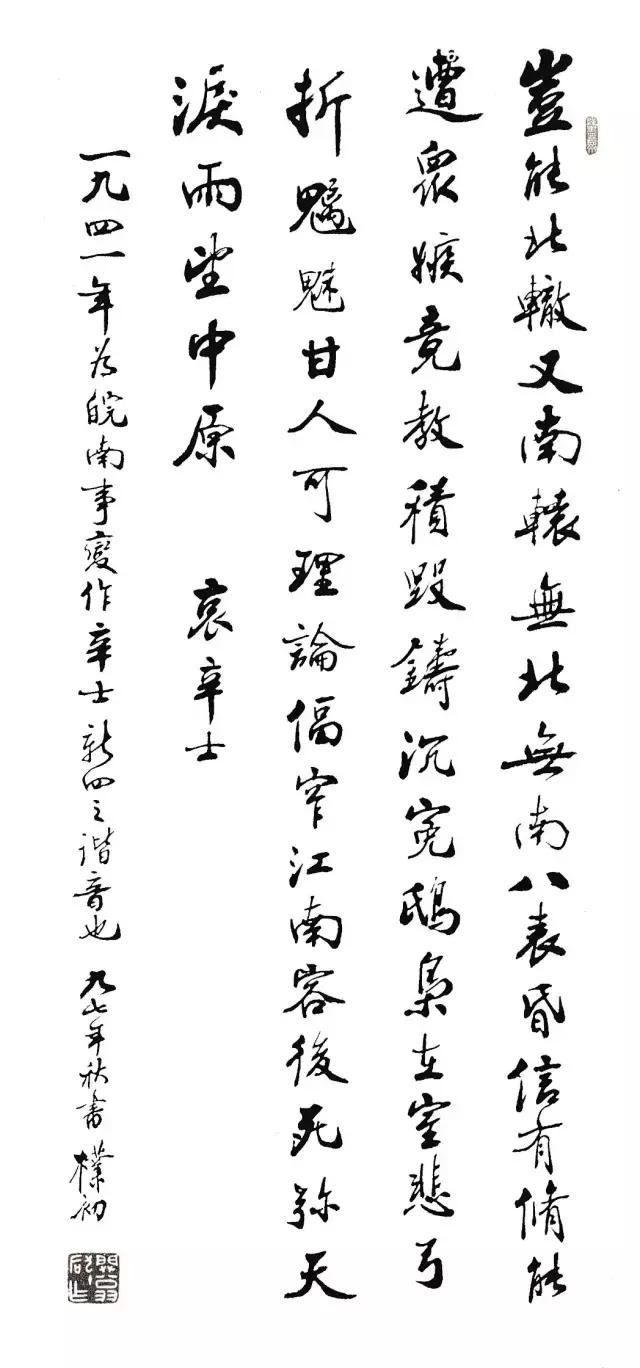 豈能北轍又南轅無北無南八表昏信有脩能
遭衆嫉竟教積毀鑄沉冤鴟梟在室悲弓
折魑魅甘人可理論偪窄江南容後死弥天
淚雨望中原 哀辛士
一九四一年为皖南事变作辛士新四之谐音也 九七年秋书 樸初